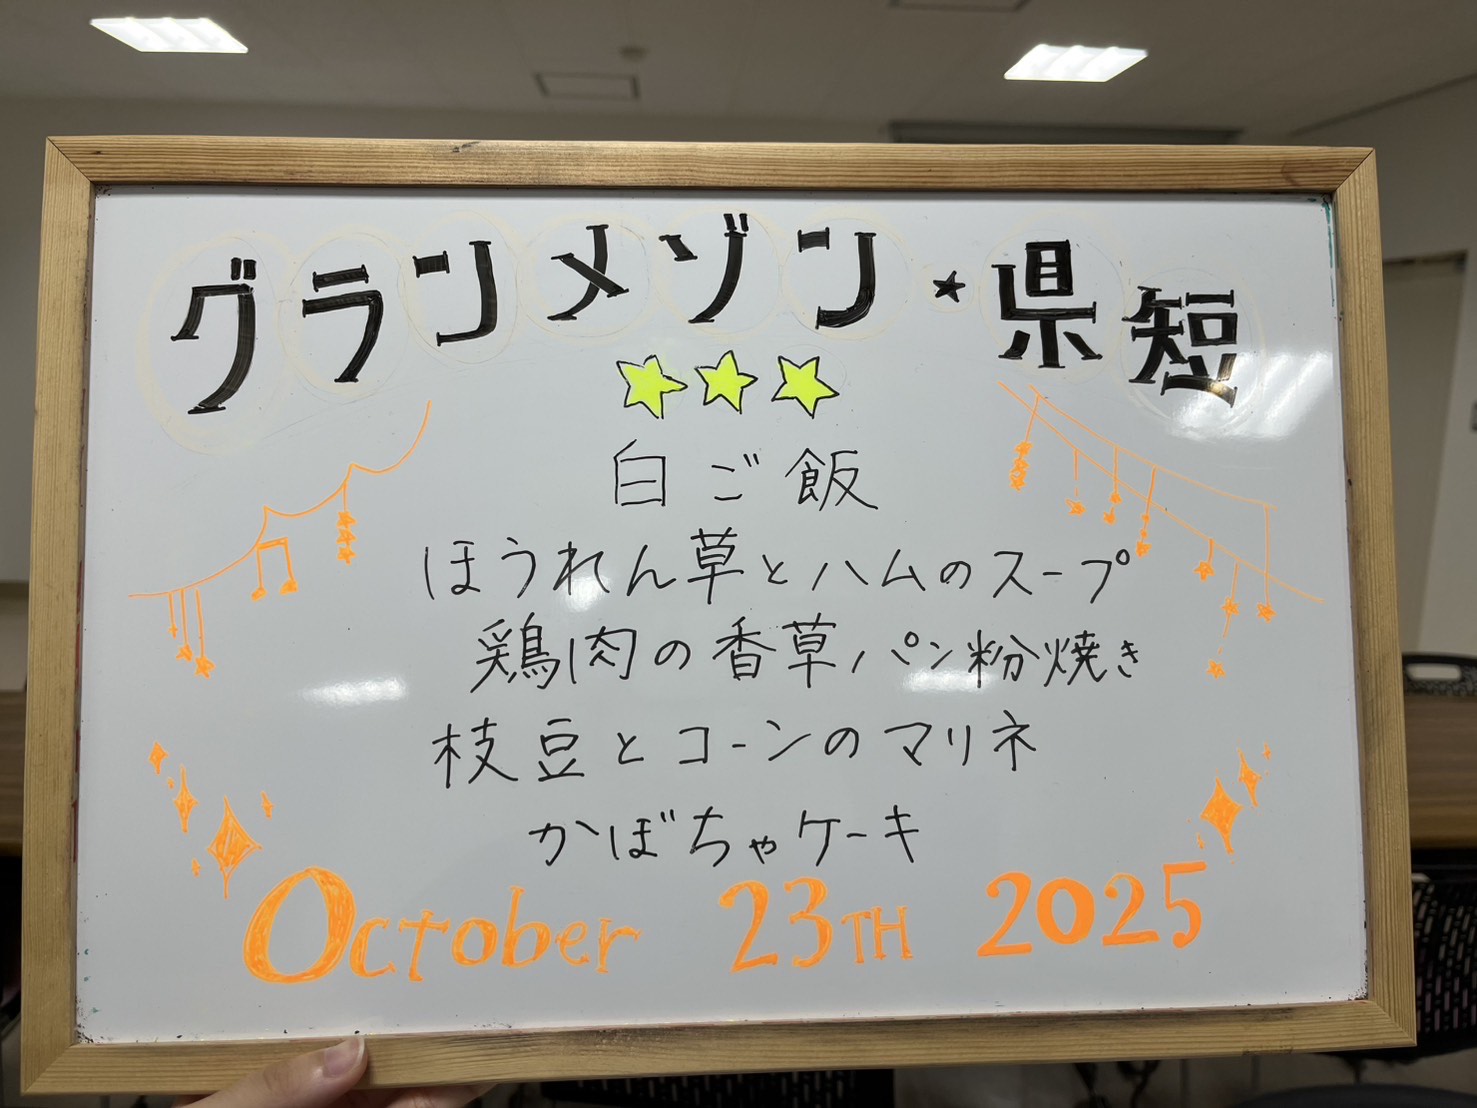 グランメゾン★県短
★★★
白ご飯
ほうれん草とハムのスープ
鶏肉の香草パン粉焼き
枝豆とコーンのマリネ
かぼちゃケーキ
October 23TH 2025